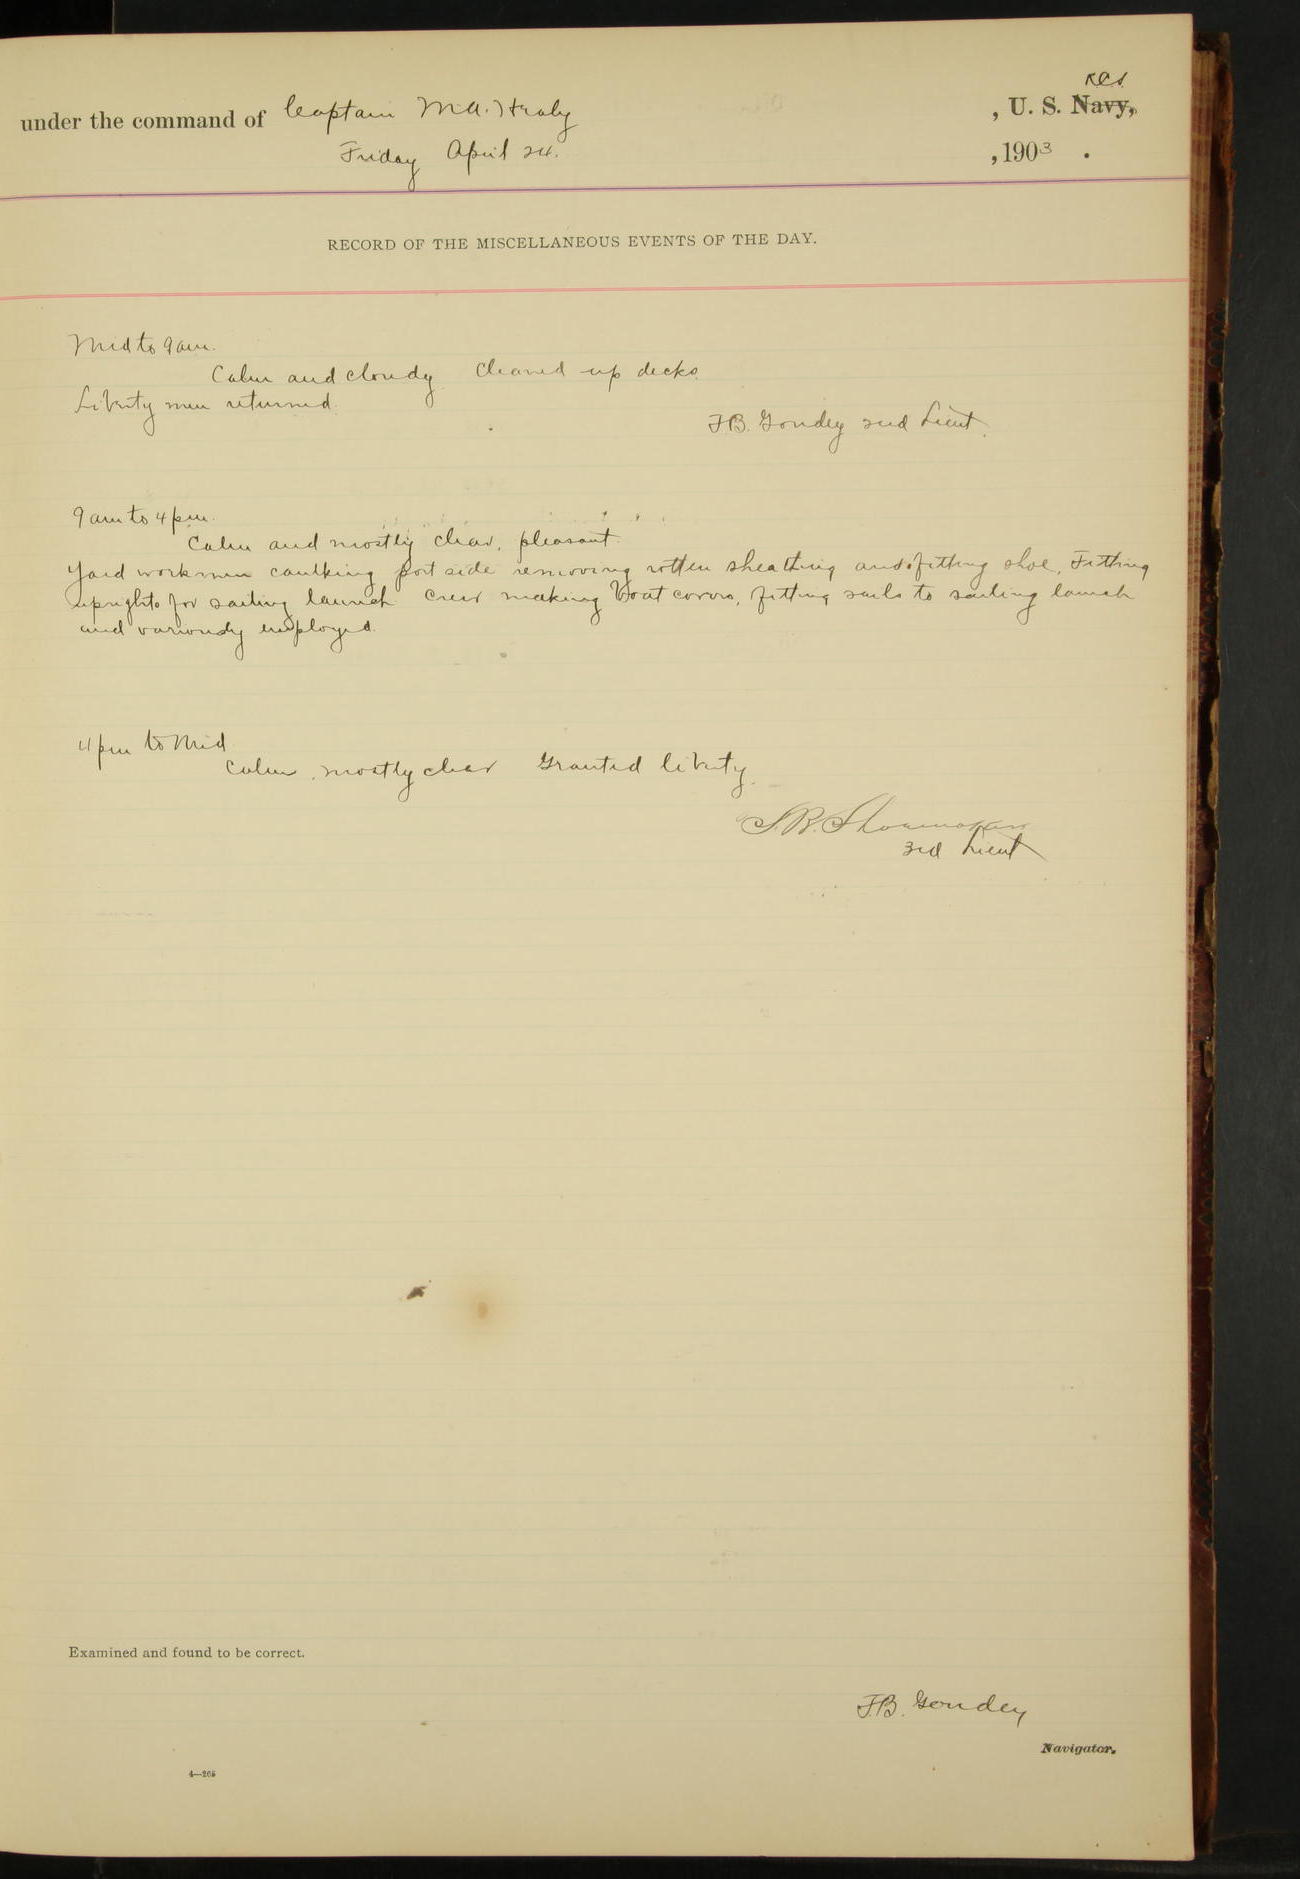 RCS
under the command of Captain M.A. Healy, U. S. Navy,
Friday April 24. , 1903 .
RECORD OF THE MISCELLANEOUS EVENTS OF THE DAY.
Mid to 9 am.
Calm and cloudy Cleaned up decks.
Liberty men returned.
F.B. Goudey 2nd Lieut.
9 am to 4 pm.
Calm and mostly clear, pleasant.
Yard workmen caulking port side removing rotten sheathing and fitting shoe, Fitting
uprights for sailing launch Crew making boat covers, fitting sails to sailing launch
and variously employed.
4 pm to Mid
Calm, mostly clear Granted liberty.
3rd Lieut
Examined and found to be correct.
F.B. Goudey
Navigator.
4—265